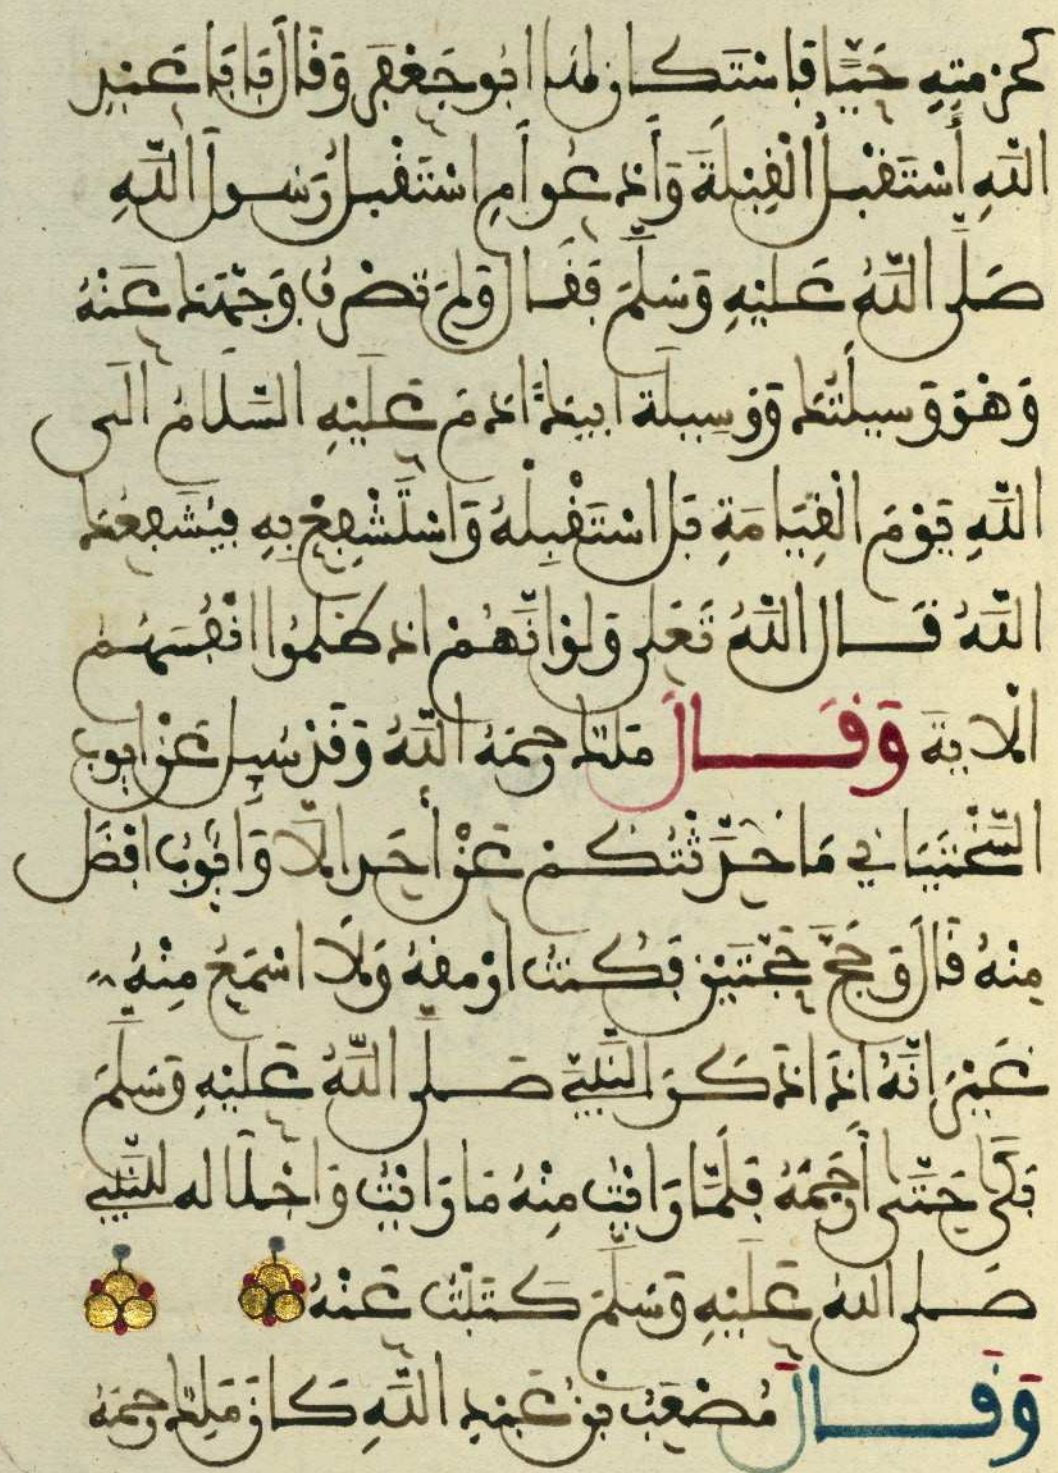 كحرمته حيا فاستكان لها ابو جعفر وقال يا با عبد
الله أستقبل القبلة وأدعوا أم استقبل رسول الله
صلى الله عليه وسلم فقال ولم تصرف وجهك عنه
وهو وسيلتك ووسيلة ابيك ادم عليه السلام الى
الله يوم القيامة بل استقبله واستشفع به فيشفعك
الله قال الله تعلى ولو انهم اذ ظلموا انفسهم
الاية وقال ملك رحمه الله وقد سيل عن ايوب
السختياني ما حدثتكم عن أحد الا وايوب افضل
منه قال وحج حجتين فكنت ارمقه ولا اسمع منه
غير انه اذا ذكر النبي صلى الله عليه وسلم
بكى حتى أرحمه فلما رايت منه ما رايت واجلاله للنبي
صلى الله عليه وسلم كتبت عنه
وقال مصعب بن عبد الله كان ملك رحمه